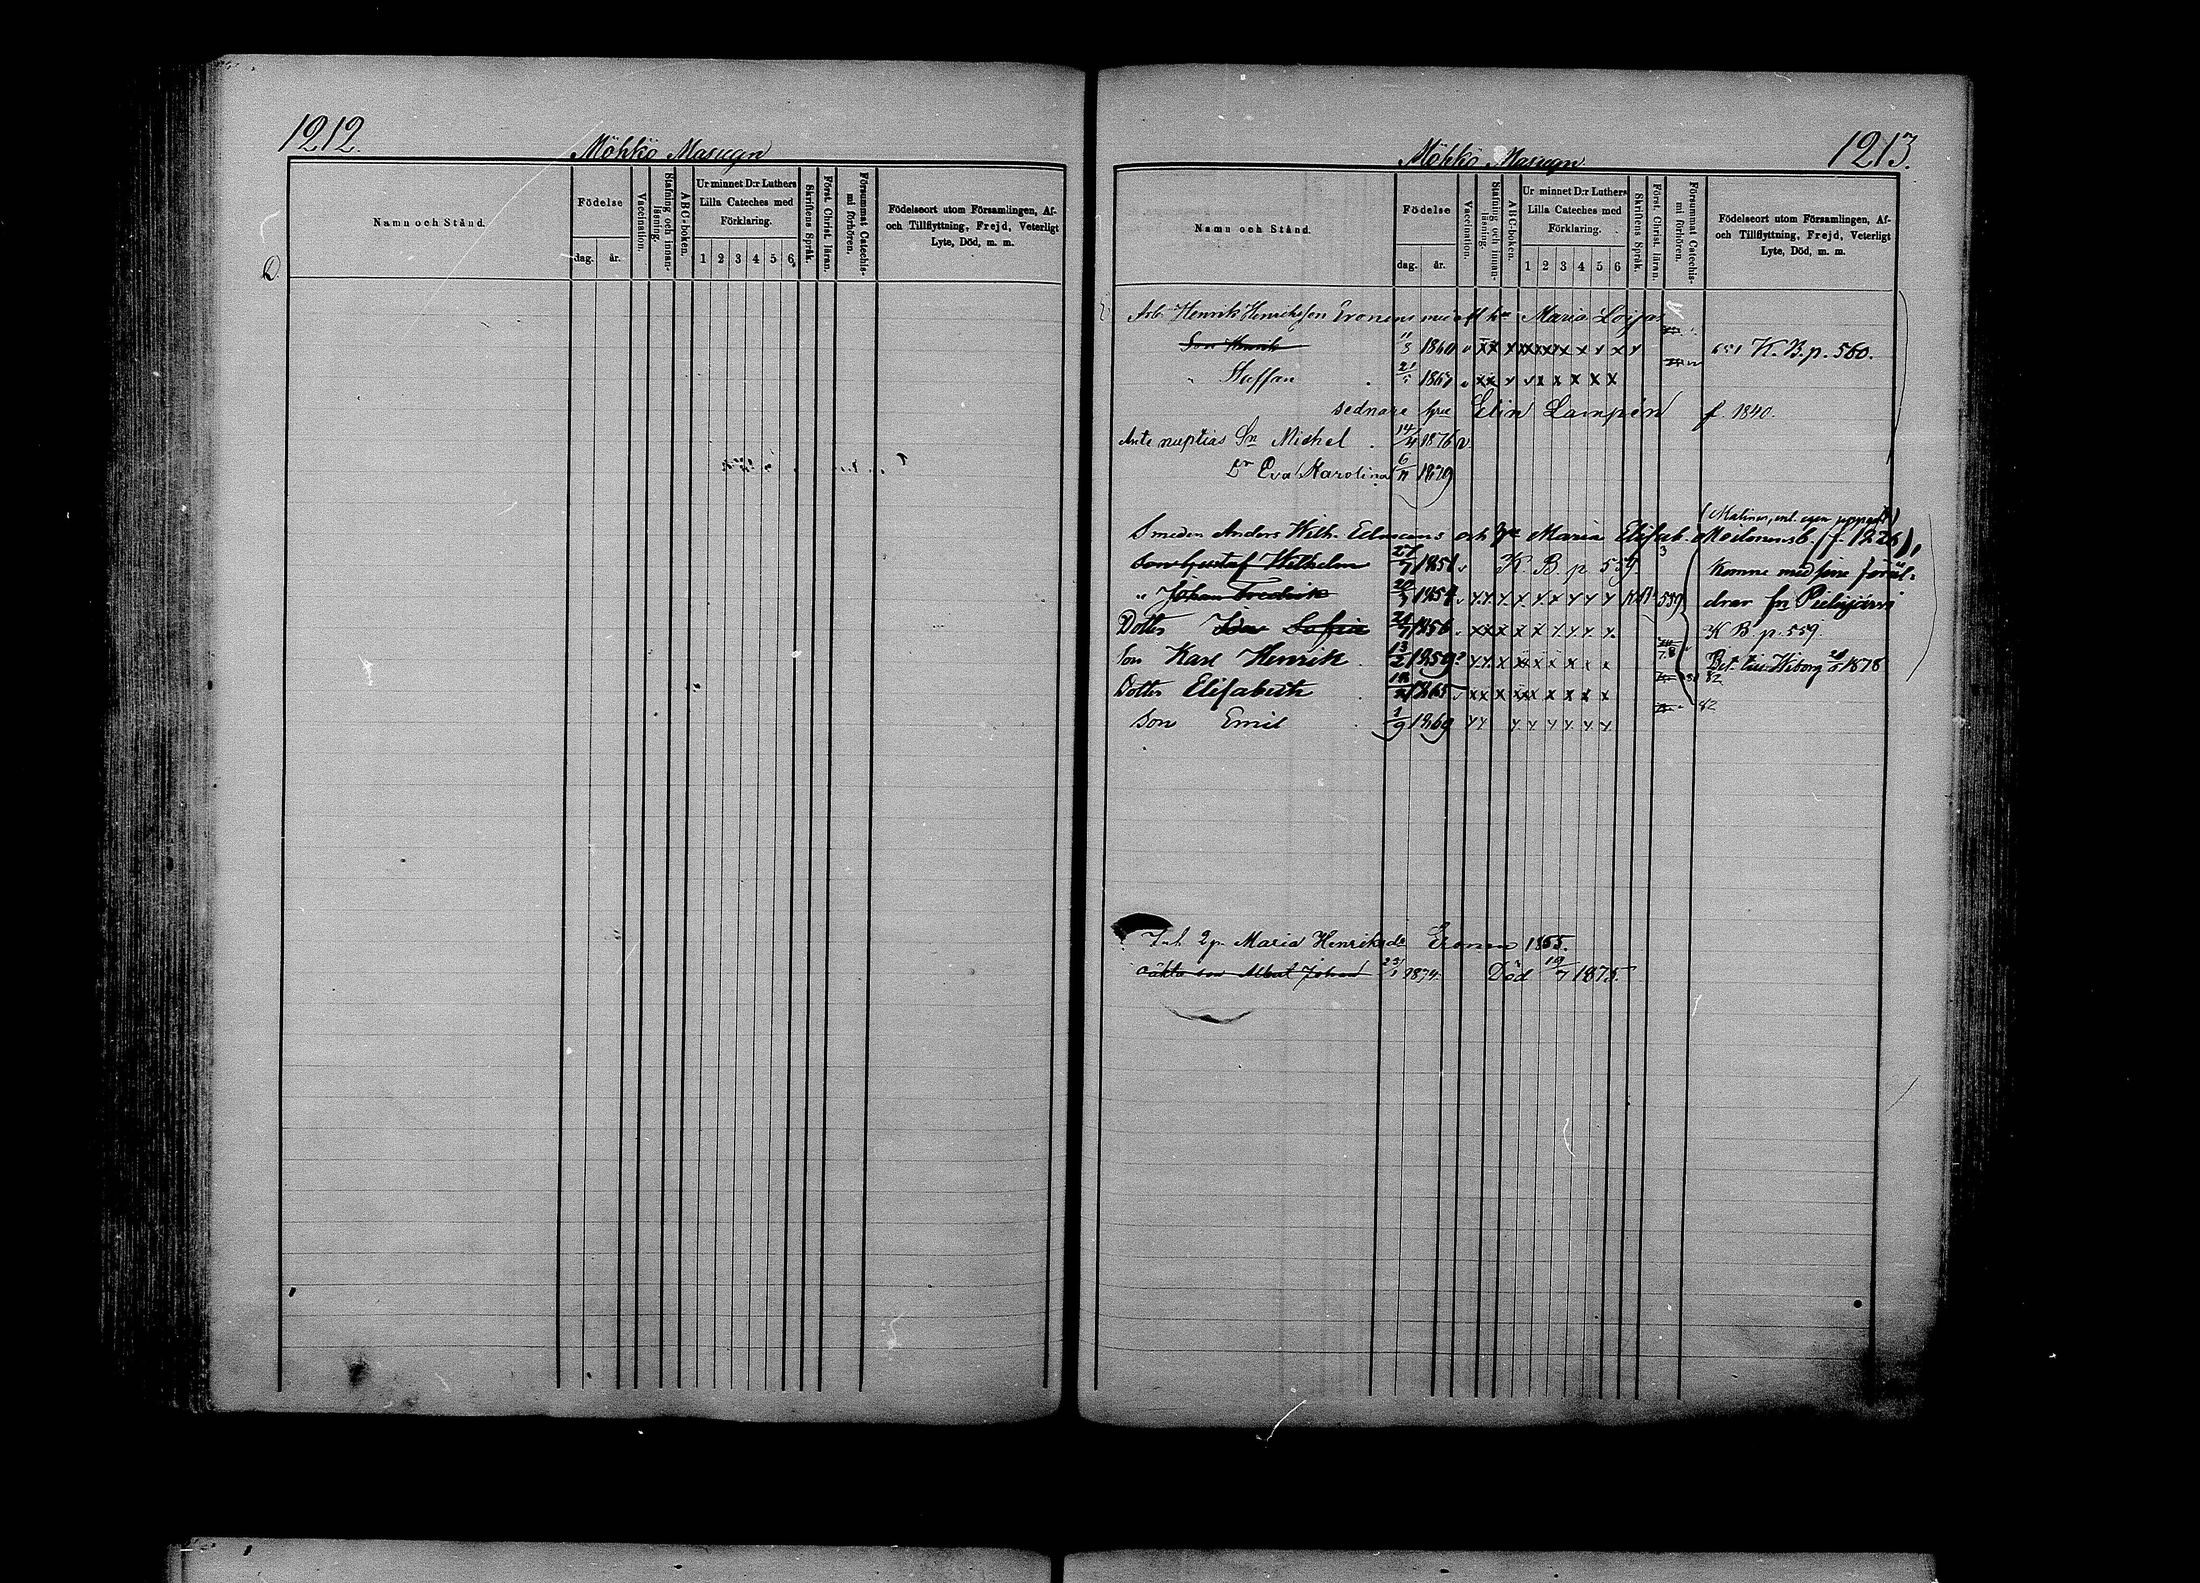 1212.
Möhkö Masugn
Namn och Stånd.
Födelse
dag. år.
Vaccination.
Stafning och innan-läsning.
ABC-boken.
Ur minnet D:r Luthers
Lilla Cateches med
Förklaring.
1 2 3 4 5 6
Skriftens Språk.
Först. Christ. läran.
Försummat Catechis-mi förhören.
Födelseort utom Församlingen, Af-
och Tillflyttning, Frejd, Veterligt
Lyte, Död, m. m.
1213.
Möhkö Masugn
Namn och Stånd.
Födelse
dag. år.
Vaccination.
Stafning och innan-läsning.
ABC-boken.
Ur minnet D:r Luthers
Lilla Cateches med
Förklaring.
1 2 3 4 5 6
Skriftens Språk.
Först. Christ. läran.
Försummat Catechis-mi förhören.
Födelseort utom Församlingen, Af-
och Tillflyttning, Frejd, Veterligt
Lyte, Död, m. m.
Arb. Henrik Henriksson Eronens med Maria Loijas
Son Henrik 11/3 1860 K. B. p. 560.
" Staffan 1867
sednare hru Elin Lampén f. 1840.
Ante nuptias Sn Michel 14/4 1876 v
Dr Eva Karolina 6/11 1879
Smeden Anders Wilh. Edmans och hu Maria Elisab. (f. 1226),
Son Gustaf Wilhelm 27/7 1851 K. B p 559
" Johan Fredrik 20/7 1854 K.B. 559
Komne med sine föräl-
drar fr Pielisjärvi
Dotter Ida Sofia 1856
K B p. 559.
Son Karl Henrik 13/2 1859
Bet. till Wiborg 1878
Dotter Elisabeth 1865 82
Son Emil 1/9 1869 82
Inh. 2 p. Maria Henriksdr Eronen 1855.
oäkta son Albert Johan 23/1 1874. Död 19/7 1875.